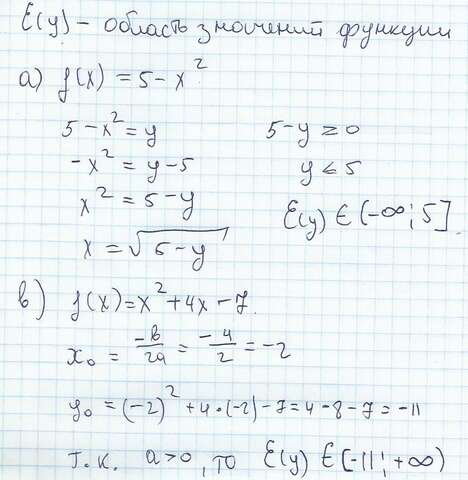 E(y) – область значений функции
а) f(x) = 5 – x²
5 – x² = y
5 – y ≥ 0
–x² = y – 5
y ≤ 5
x² = 5 – y
E(y) ∈ (–∞; 5]
x = √5 – y
в) f(x) = x² + 4x – 7
x₀ = –в/2a = –4/2 = –2
y₀ = (–2)² + 4·(–2) – 7 = 4 – 8 – 7 = –11
т.к. a > 0, то E(y) ∈ (–11; +∞)